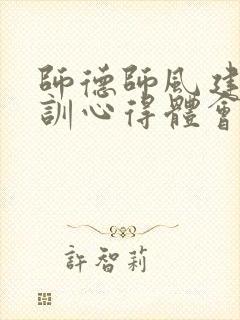 師德師風建
訓心得體會
許智莉